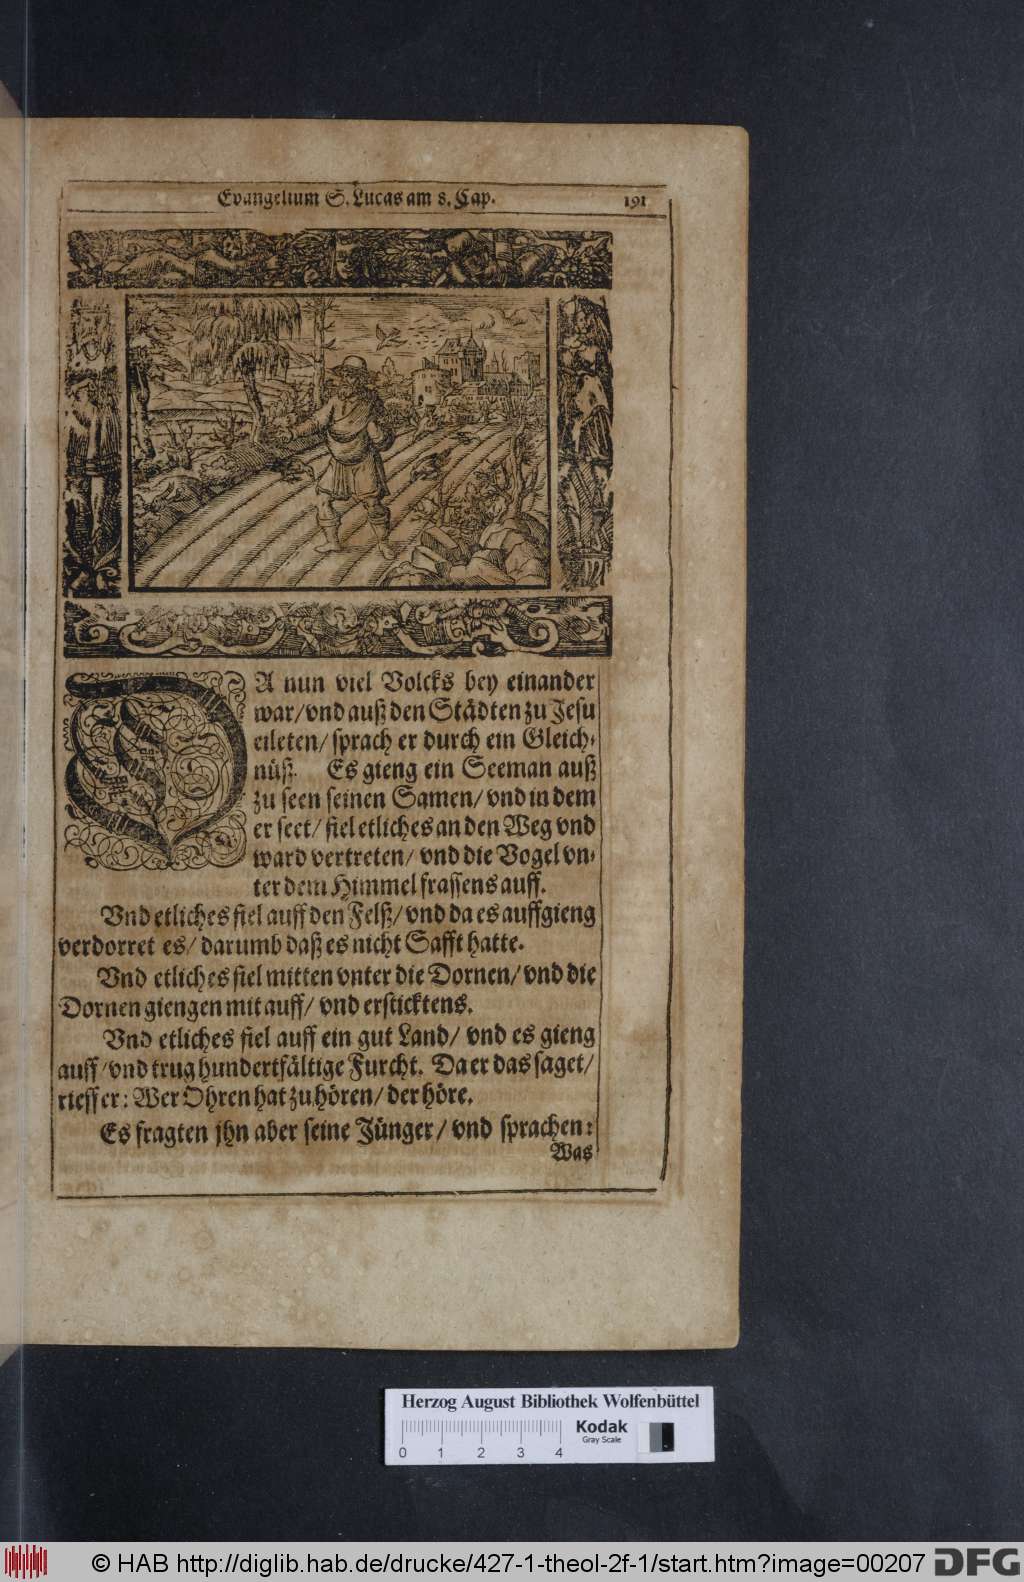 Evangelium S. Lucas am 8. Cap. 191
DA nun viel Volcks bey einander
war/ vnd auß den Städten zu Jesu
eileten/ sprach er durch ein Gleich-
nüß. Es gieng ein Seeman auß
zu seen seinen Samen/ vnd in dem
er seet/ fiel etliches an den Weg vnd
ward vertreten/ vnd die Vogel vn-
ter dem Himmel frassens auff.
Vnd etliches fiel auff den Felß/ vnd da es auffgieng
verdorret es/ darumb daß es nicht Safft hatte.
Vnd etliches fiel mitten vnter die Dornen/ vnd die
Dornen giengen mit auff/ vnd ersticktens.
Vnd etliches fiel auff ein gut Land/ vnd es gieng
auff/ vnd trug hundertfältige Furcht. Da er das saget/
rieff er: Wer Ohren hat zu hören/ der höre.
Es fragten jhn aber seine Jünger/ vnd sprachen:
Was
Herzog August Bibliothek Wolfenbüttel
Kodak
Gray Scale
0 1 2 3 4
© HAB http://diglib.hab.de/drucke/427-1-theol-2f-1/start.htm?image=00207 DFG